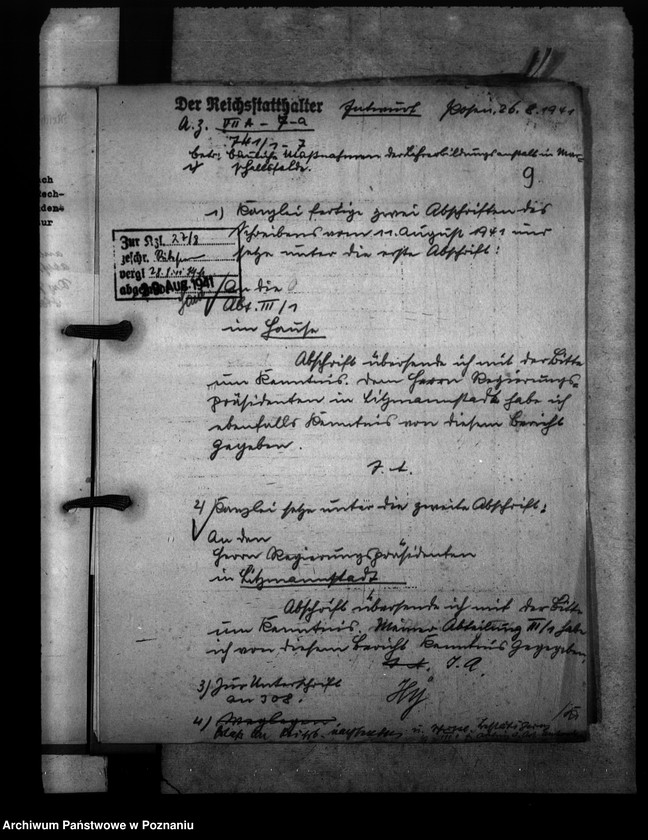 Der Reichsstatthalter Entwurf Posen, 26.8.1941
A.Z. VII A - 7-a
741/1 - 7
betr: bauliche Maßnahmen der Lehrerbildungsanstalt in Mar-
schallsfelde.
9
1) Kanzlei fertige zwei Abschriften des
Schreibens vom 11. August 1941 und
setze unter die erste Abschrift:
Zur Kzl. 27/8
geschr.
vergl. 28.8.
abges. 29. AUG. 1941
An die
Abt. III/1
im Hause
Abschrift übersende ich mit der Bitte
um Kenntnis. Dem Herrn Regierungs-
präsidenten in Litzmannstadt habe ich
ebenfalls Kenntnis von diesem Bericht
gegeben.
I. A.
2) Kanzlei setze unter die zweite Abschrift:
An den
Herrn Regierungspräsidenten
in Litzmannstadt
Abschrift übersende ich mit der Bitte
um Kenntnis. Meiner Abteilung III/1 habe
ich von diesem Bericht Kenntnis gegeben.
I. A. I. A.
3) Zur Unterschrift
an 308.
4) Weglegen
Archiwum Państwowe w Poznaniu